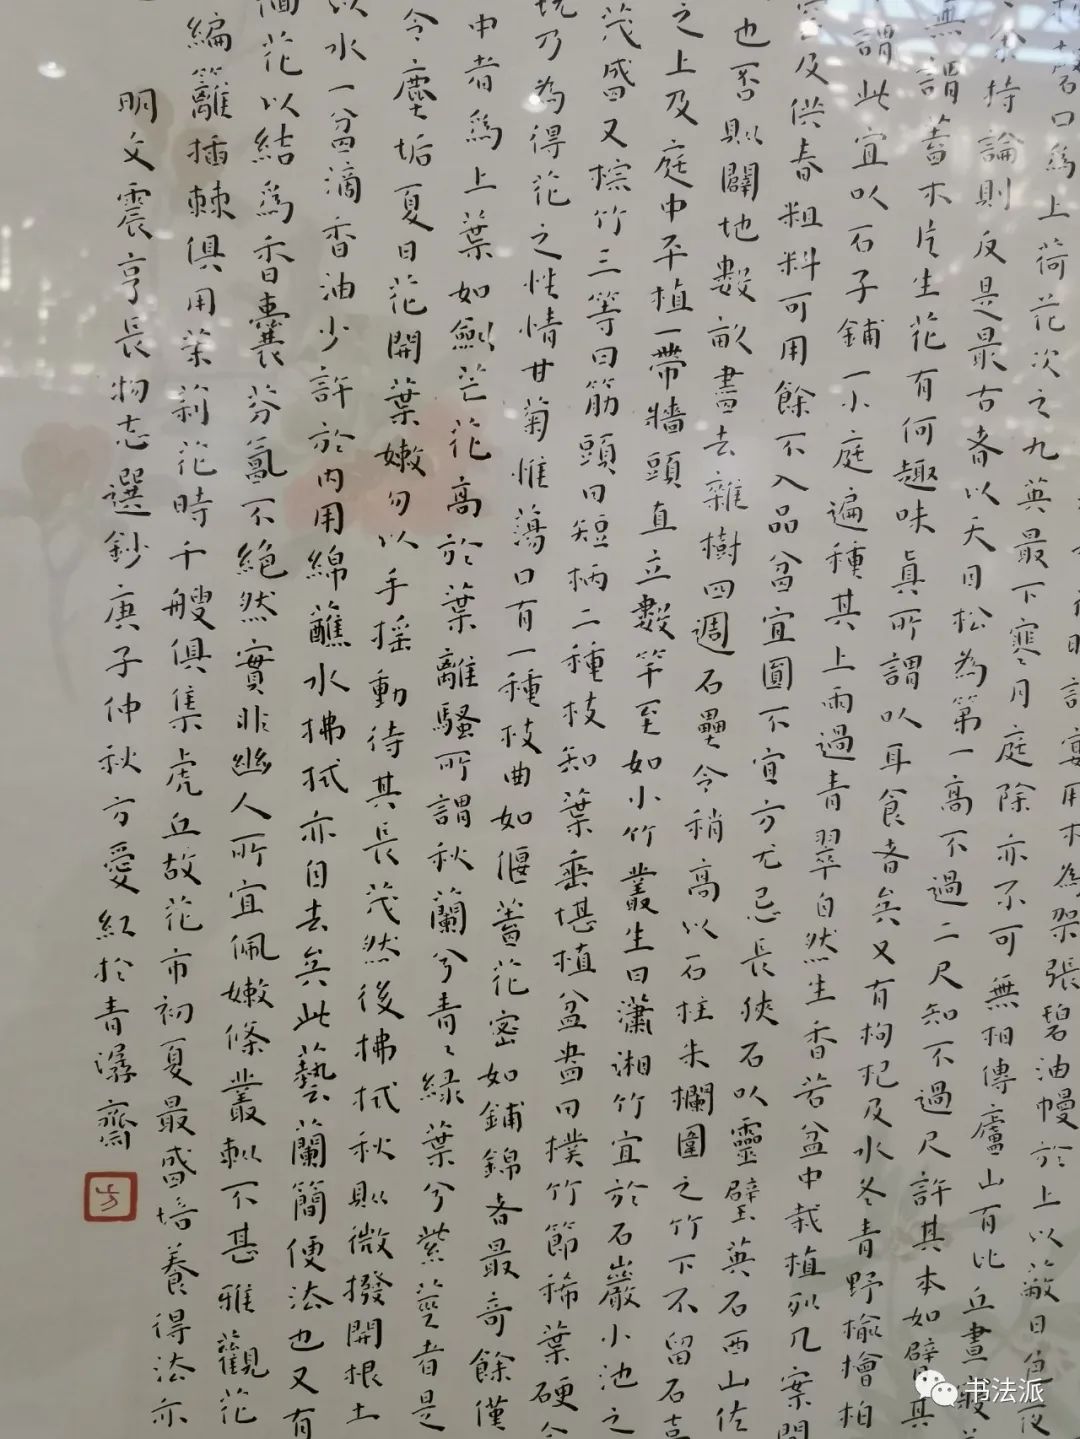 磬口爲上荷花次之九英最下寒月庭除亦不可無相傳廬山有比丘晝寢
余持論則反是最古者以天目松為第一高不過二尺知不過尺許其本如臂其
無謂蓄木片生花有何趣味眞所謂以耳食者矣又有枸杞及水冬青野榆檜柏
謂此宜以石子鋪一小庭遍種其上雨過青翠自然生香若盆中栽植列几案間
及供春粗料可用餘不入品盆宜圓不宜方尤忌長狹石以靈璧英石西山佐
也否則闢地數畝盡去雜樹四週石壘令稍高以石柱朱欄圍之竹下不留石
之上及庭中平植一帶牆頭直立數竿至如小竹叢生曰瀟湘竹宜於石巖小池之
茂盛又棕竹三等曰筋頭曰短柄二種枝知葉垂堪植盆盎曰樸竹節稀葉硬全
乃為得花之性情甘菊惟蕩口有一種枝曲如偃蓋花密如鋪錦者最奇餘僅
中者爲上葉如劍芒花高於葉離騷所謂秋蘭兮青〻綠葉兮紫莖者是
令塵垢夏日花開葉嫩勿以手搖動待其長茂然後拂拭秋則微撥開根土
以水一盆滴香油少許於內用綿蘸水拂拭亦自去矣此藝蘭簡便法也又有
花以結爲香囊芬氳不絕然實非幽人所宜佩嫩條叢刺不甚雅觀花
編籬插棘俱用茉莉花時千艘俱集虎丘故花市初夏最盛培養得法亦
明文震亨長物志選鈔庚子仲秋方愛紅於青潺齋
方
书法派